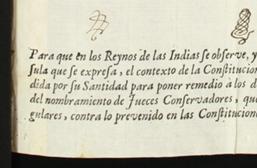 Para que en los Reynos de las Indias se observe, y
sula que se expresa, el contexto de la Constitucion
dida por su Santidad para poner remedio a los d
del nombramiento de Jueces Conservadores, que
gulares, contra lo prevenido en las Constitucione